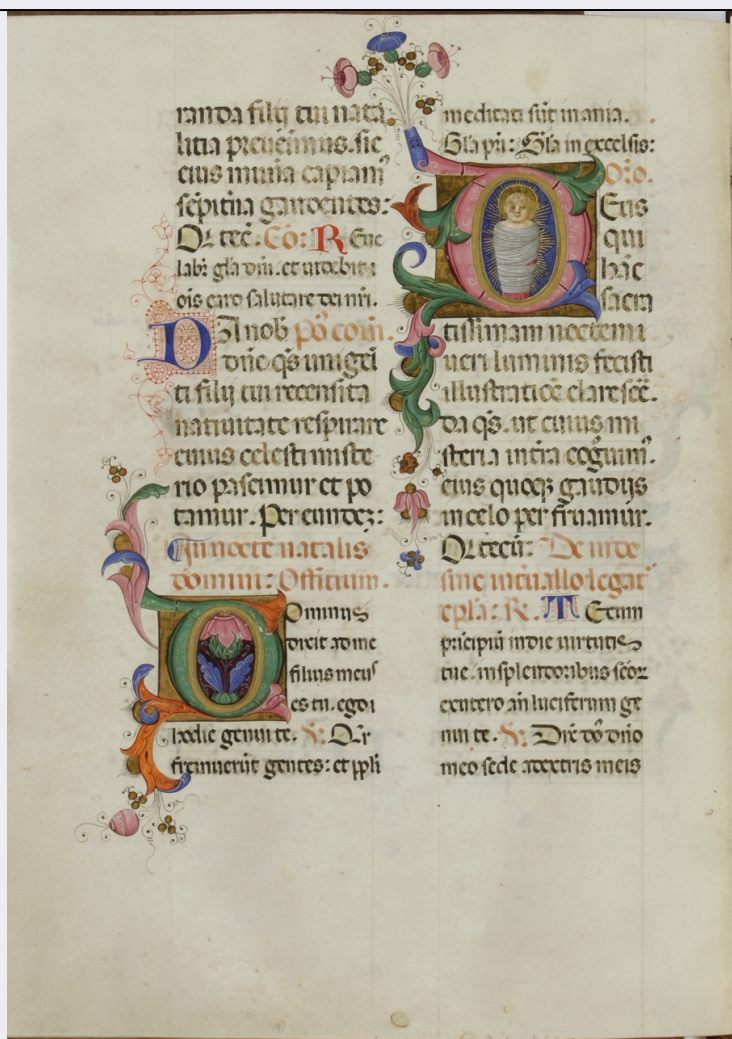 randa filij tui nata
litia preuenimus. sic
eius mun̄ia capiam᷒
sēpit̄na gaudentes:
Q̄i tec̄. Cō: Reue
labr̄ gl̄a dn̄i. et uidebit
oīs caro salutare dei nr̄i.
DA nob̄ pō com̄.
dn̄e q̄s unigēi
ti filij tui recensita
natiuitate respirare
cuius celesti miste
rio pascimur et po
tamur. Per eundez:
In nocte natalis
domini: Offitium.
Dominus
dixit ad me
filius meus
es tu. ego
hodie genui te. V̄: Qr̄
fremuerūt gentes: et ppl̄i
meditati sūt inania.
Gl̄a pr̄i: Gl̄a in excelsis:
Oro.
Deus
qui
hāc
sacra
tissimam noctem
ueri luminis fecisti
illustratiōe claresce̅.
da q̄s. ut cuius mi
steria in tr̄a cog̅uim᷒.
eius quoqz gaudijs
in celo perfruamur.
Qi tecū: De inde
sine int̄uallo legat᷒
epl̄a: R̄. Tecum
prīcipiū in die uirtutis
tue. in splendoribus scōr
ex utero an̄ luciferum ge
nui te. V̄: Dix̄ dō dn̄o
meo sede a dextris meis